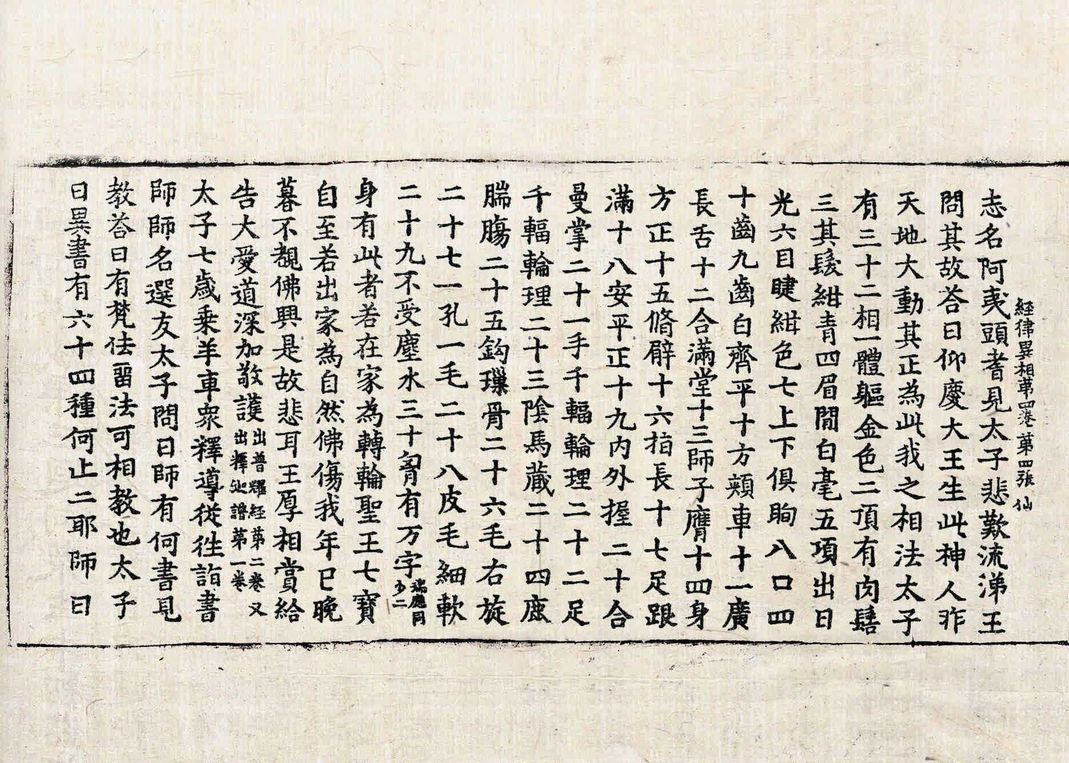 經律異相第四卷 第四張 仙
志名阿夷頭耆見太子悲歎流涕王
問其故荅曰仰慶大王生此神人昨
天地大動其正為此我之相法太子
有三十二相一體軀金色二頂有肉髻
三其髮紺青四眉閒白毫五項出日
光六目睫紺色七上下俱眴八口四
十齒九齒白齊平十方頰車十一廣
長舌十二合滿堂十三師子膺十四身
方正十五脩臂十六指長十七足跟
滿十八安平正十九內外握二十合
曼掌二十一手千輻輪理二十二足
千輻輪理二十三陰馬藏二十四鹿
腨膓二十五鈎璅骨二十六毛右旋
二十七一孔一毛二十八皮毛細軟
二十九不受塵水三十胷有万字瑞應同少二
身有此者若在家為轉輪聖王七寶
自至若出家為自然佛傷我年已晚
暮不覩佛興是故悲耳王厚相賞給
告大愛道深加敬護出普耀經第二卷又出釋迦譜第一卷
太子七歲乘羊車衆釋導從往詣書
師師名選友太子問曰師有何書見
教荅曰有梵佉留法可相教也太子
曰異書有六十四種何止二耶師曰